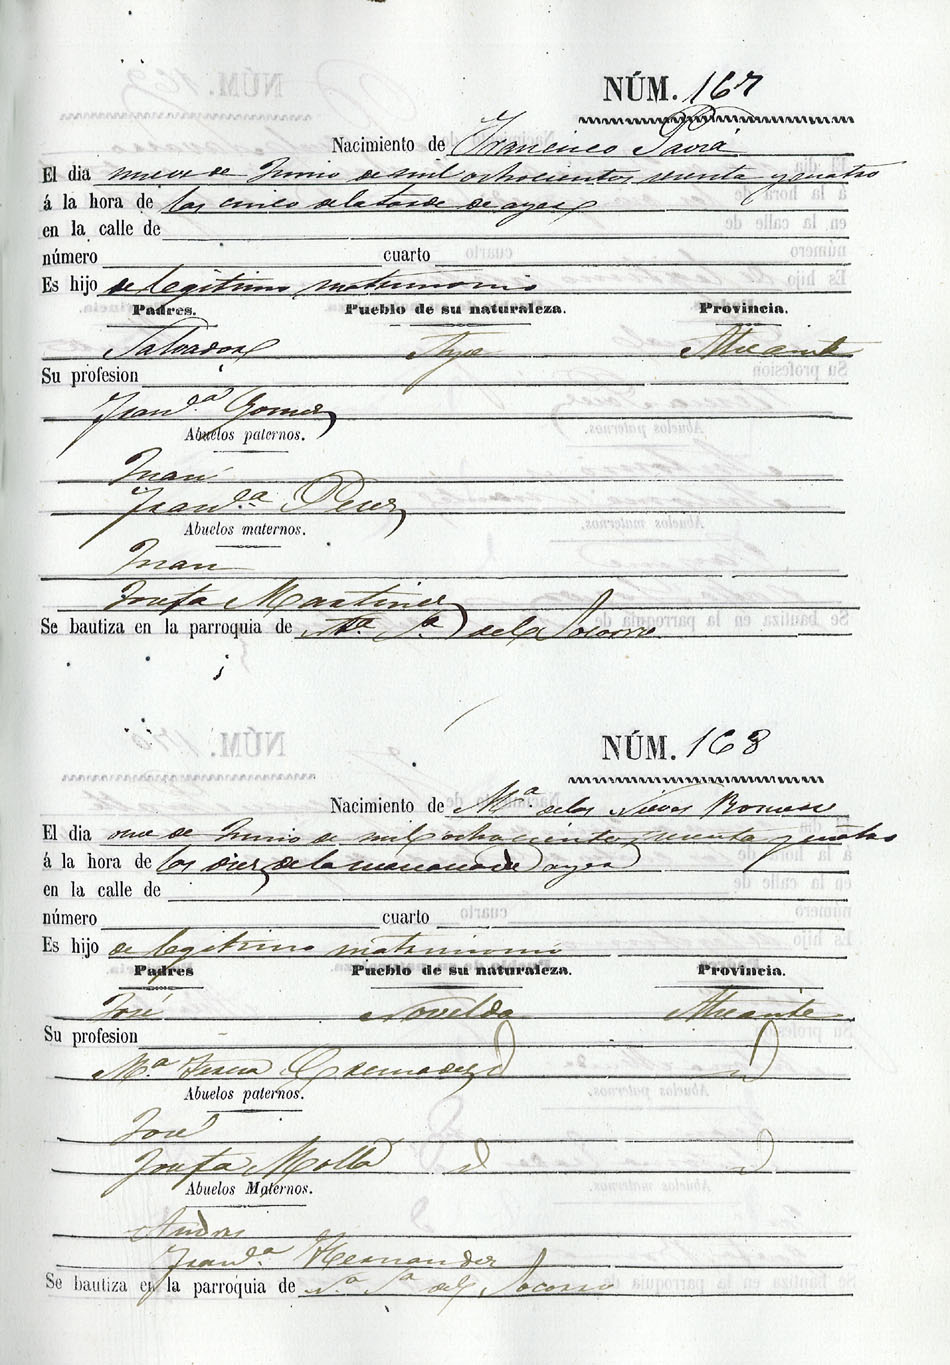 NÚM. 167
Nacimiento de Francisco Pavia
El dia nueve de Junio de mil ochocientos sesenta y quatro
á la hora de las cinco de la tarde de ayer
en la calle de
número cuarto
Es hijo de legitimo matrimonio
Padres. Pueblo de su naturaleza. Provincia.
Salvador Aspe Alicante
Su profesion
Fran.ca Gomez
Abuelos paternos.
Juan
Fran.ca Perez
Abuelos maternos.
Juan
Josefa Martinez
Se bautiza en la parroquia de Ntª Sª de la Socorro
NÚM. 168
Nacimiento de Mª de las Nieves Romero
El dia once de Junio de mil ochocientos sesenta y quatro
á la hora de las diez de la mañana de ayer
en la calle de
número cuarto
Es hijo de legitimo matrimonio
Padres Pueblo de su naturaleza. Provincia.
José Novelda Alicante
Su profesion
Mª Teresa
Abuelos paternos.
José
Josefa Molla
Abuelos Maternos.
Andres
Fran.ca Hernandez
Se bautiza en la parroquia de Nª Sª del Socorro